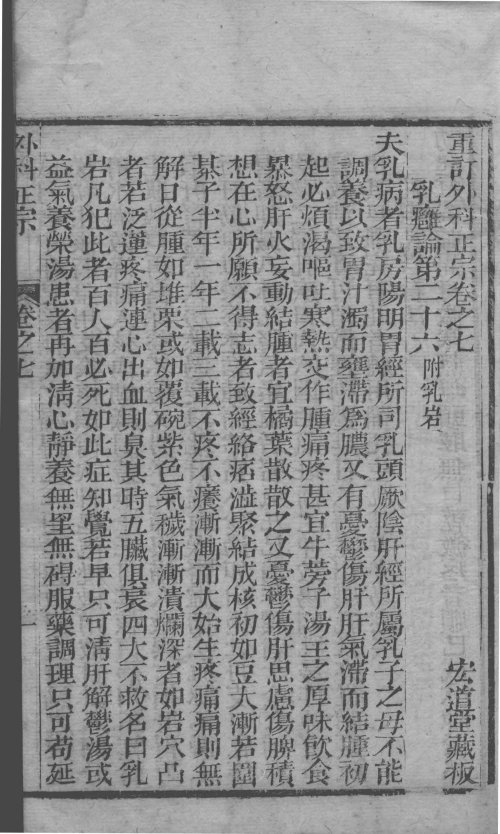 重訂外科正宗卷之七
宏道堂藏板
乳癰論第二十六附乳岩
夫乳病者乳房陽明胃經所司乳頭厥陰肝經所屬乳子之母不能
調養以致胃汁濁而壅滯為膿又有憂鬱傷肝肝氣滯而結腫初
起必煩渴嘔吐寒熱交作腫痛疼甚宜牛蒡子湯主之厚味飲食
暴怒肝火妄動結腫者宜橘葉散散之又憂鬱傷肝思慮傷脾積
想在心所願不得志者致經絡痞澁聚結成核初如豆大漸若圍
棊子半年一年二載三載不疼不癢漸漸而大始生疼痛痛則無
解日從腫如堆栗或如覆碗紫色氣穢漸漸潰爛深者如岩穴凸
者若泛蓮疼痛連心出血則臭其時五臟俱衰四大不救名曰乳
岩凡犯此者百人百必死如此症知覺若早只可清肝解鬱湯或
益氣養榮湯患者再加清心靜養無罣無碍服藥調理只可苟延
外科正宗
卷之七
一